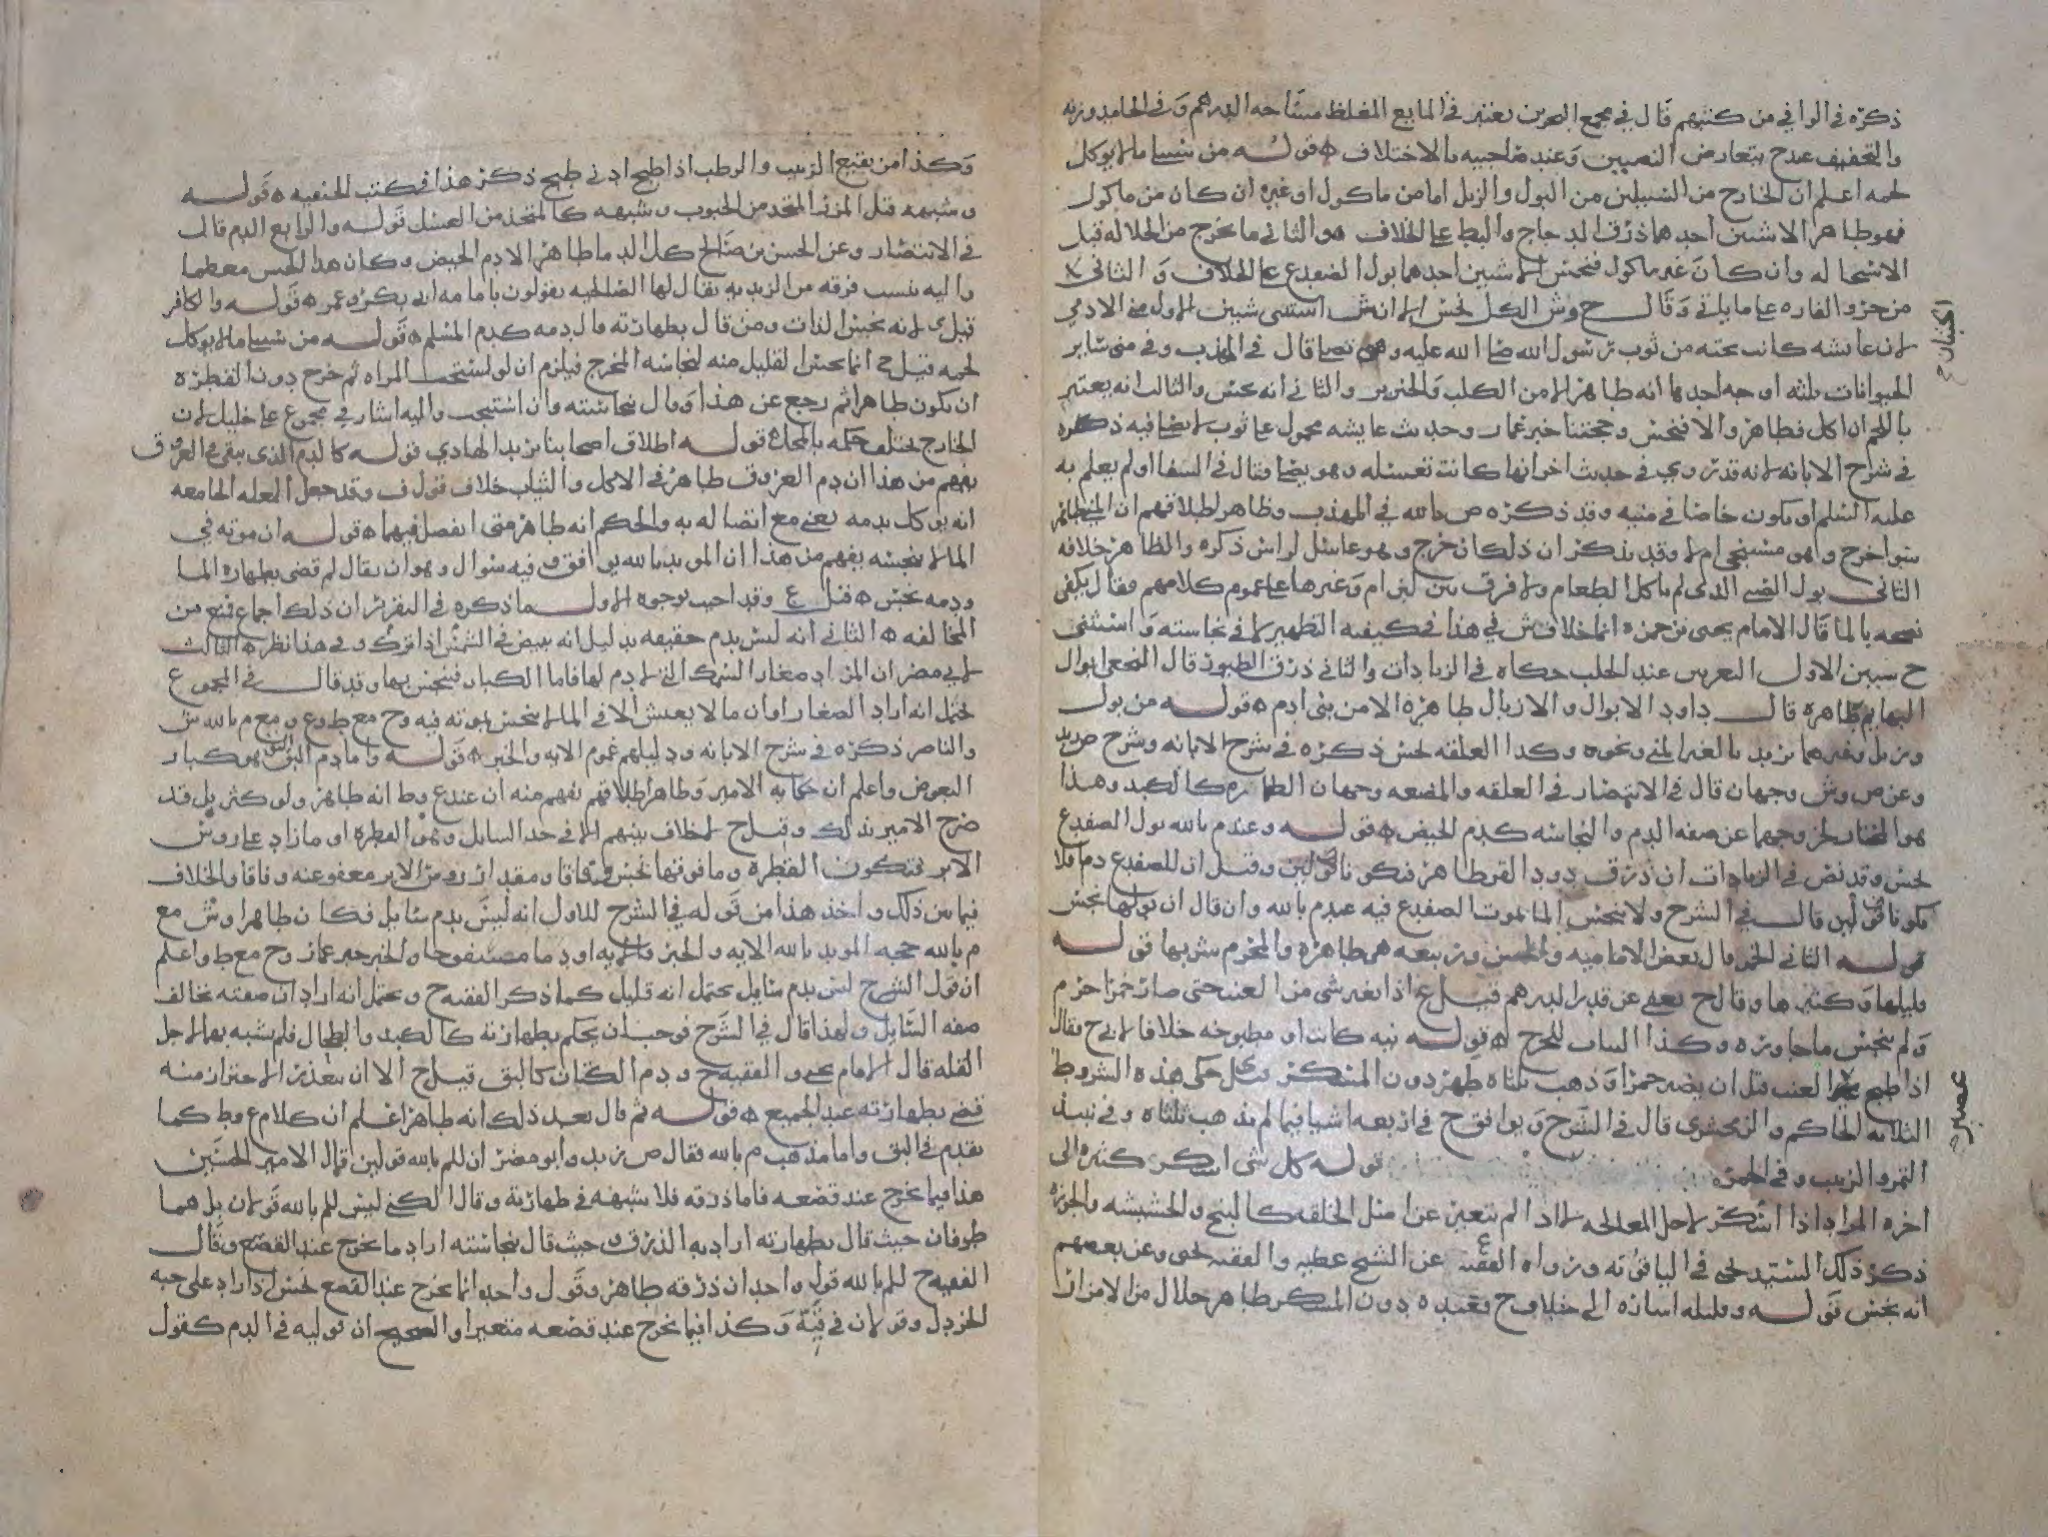 ذكره في الوافي من كتبهم قال في مجمع البحرين يعتبر في المايع المغلظ مساحه الدرهم وفي الجامد وزنه
والتخفيف عند ح بتعارض النصيين وعند صاحبيه بالاختلاف ه قوله من سبيلي ما لا يوكل
لحمه اعلم ان الخارج من السبيلين من البول والزبل اما من ماكول او غيره ان كان من ماكول
فهو طاهر الا شيين احدهما ذرق الدجاج والبط على الخلاف والثاني ما يخرج من الجلاله قبل
الاستحاله وان كان غير ماكول فنجس الا شيين احدهما بول الضفدع على الخلاف والثاني
من خرو الفاره على ما ياتي وقال ح وش الكل نجس الا ان ش استثنى شيين الاول مني الادمي
لان عائشه كانت تحته من ثوب رسول الله صلى الله عليه وهو يصلي قال في المهذب وفي مني سائر
الحيوانات ثلثه اوجه احدها انه طاهر الا من الكلب والخنزير والثاني انه نجس والثالث انه يعتبر
باللحم ان اكل فطاهر والا فنجس وحجتنا خبر عمار وحديث عايشه محمول على ثوب لا يصلي فيه ذكره
في شرح الابانه لانه قد روي في حديث اخر انها كانت تغسله وهو يصلي وقال في الشفا او لم يعلم به
عليه السلم او يكون خاصا في منيه وقد ذكره ص بالله في المهذب وظاهر اطلاقهم ان المني
سوا خرج وهو مستنجي ام لا وقد يذكر ان ذلك ان خرج وهو غاسل لراس ذكره والظاهر خلافه
الثاني بول الصبي الذي لم ياكل الطعام ولا فرق بين لبن ام وغيرها على عموم كلامهم وقال يكفي
نضحه بالما قال الامام يحيى بن حمزه انما خلاف ش في هذا في كيفيه التطهير لا في نجاسته واستثنى
ح شيين الاول البعر عند الحلب حكاه في الزيادات والثاني ذرق الطيور قال النخعي ابوال
البهايم طاهره قال داود الابوال والازبال طاهره الا من بني ادم ه قوله من بول
وزبل وغيرهما يريد بالغير المني ونحوه وكذا العلقه نجس ذكره في شرح الابانه وشرح ض زيد
وعن ص وش وجهان قال في الانتصار في العلقه والمضغه وجهان الطهاره كالكبد وهذا
هو المختار لخروجهما عن صفه الدم والنجاسه كدم الحيض ه قوله وعند م بالله بول الضفدع
نجس وقد نص في الزيادات ان ذرق دود القز طاهر فيكونا قولين وقيل ان للضفدع دم فلا
يكونا قولين قال في الشرح ولا ينجس الما بموت الضفدع فيه عند م بالله وان قال ان بولها نجس
قوله الثاني الخمر قال بعض الاماميه والحسن وربيعه هي طاهره والمحرم شربها قوله
قليلها وكثيرها وقال ح يعفى عن قدر الدرهم قيل ع اذا تغير شي من العنب حتى صار خمرا حرم
ولم ينجس ما جاوره وكذا الباب للخرج ه قوله نيه كانت او مطبوخه خلافا لابي ح فقال
اذا طبخ العنب قبل ان يصير خمرا وذهب ثلثاه طهر دون المسكر قيل ي حكى هذه الشروط
الثلاثه الحاكم والزمخشري قال في الشرح ويوافق ح في اربعه اشيا فيما لم يذهب ثلثاه وفي نبيذ
التمر والزبيب وفي الخمره قوله كل شي اسكر كثيره الى
اخره المراد اذا اسكر لاجل المعالجه لا اذا لم يتغير عن اصل الخلقه كالبنج والحشيشه والجوزه
ذكر ذلك السيد يحيى في الياقوته ورواه الفقيه ع عن الشيخ عطيه والفقيه يحيى وعن بعضهم
انه نجس قوله وقليله اشاره الى خلاف ح فعنده دون المسكر طاهر حلال من الامزار
الكتاب ح
عصير
وكذا من نقيع الزبيب والرطب اذا طبخ ادنى طبخ ذكر هذا في كتب الحنفيه ه قوله
وشبهه قيل المزر المتخذ من الحبوب وشبهه كالمتخذ من العسل قوله والرابع الدم قال
في الانتصار وعن الحسن بن صالح كل الدما طاهر الا دم الحيض وكان هذا الحسن معظما
واليه ينسب فرقه من الزيديه يقال لها الصالحيه يقولون بامامه ابي بكر وعمر ه قوله والكافر
قيل ي لانه نجس الذات ومن قال بطهارته قال دمه كدم المسلم ه قوله من سبيلي ما لا يوكل
لحمه قيل ح انما نجس القليل منه لنجاسه المخرج فيلزم ان لو استنجت المراه ثم خرج دون القطره
ان يكون طاهرا ثم رجع عن هذا وقال بنجاسته وان استنجت واليه اشار في مجموع علي خليل لان
الخارج يختلف حكمه بالمحل ه قوله اطلاق اصحابنا يريد الهادي قوله كالدم الذي يبقى في العروق
يفهم من هذا ان دم العروق طاهر في الاكل والثياب خلاف قول ف وقد جعل العله الجامعه
انه يوكل بدمه يعني مع اتصاله به والحكم انه طاهر متى انفصل فيهما ه قوله ان موته في
الما لا ينجسه يفهم من هذا ان المويد بالله يوافق وفيه سوال وهو ان يقال لم قضى بطهاره الما
ودمه نجس ه قيل ع وقد اجيب بوجوه الاول ما ذكره في التقرير ان ذلك اجماع فمنع من
المخالفه ه الثاني انه ليس بدم حقيقه بدليل انه يبيض في الشمس اذا ترك وفي هذا نظر ه الثالث
لابي مضر ان المراد صغار السمك التي لا دم لها فاما الكبار فينجس بها وقد قال في المجموع
يحتمل انه اراد الصغار او ان ما لا يعيش الا في الما لا ينجس بموته فيه وح مع ط وع ومع م بالله ش
والناصر ذكره في شرح الابانه ودليلهم عموم الايه والخبر ه قوله واما دم البق هو كبار
البعوض واعلم ان حكايه الامير وظاهر اطلاقهم يفهم منه ان عند ع وط انه طاهر ولو كثر بل قد
صرح الامير بذلك وقيل ح لا خلاف بينهم الا في حد السايل وهو القطره او ما زاد على روس
الابر فتكون القطره وما فوقها نجس وفاقا ومقدار روس الابر معفو عنه وفاقا والخلاف
فيما بين ذلك واخذ هذا من قوله في الشرح للاول انه ليس بدم سايل فكان طاهرا وش مع
م بالله حجه المويد بالله الايه والخبر والايه او دما مسفوحا والخبر خبر عمار وح مع ط واعلم
ان قول الشرح ليس بدم سايل يحتمل انه قليل كما ذكر الفقيه ح ويحتمل انه اراد ان صفته تخالف
صفه السايل ولهذا قال في الشرح فوجب ان يحكم بطهارته كالكبد والطحال فلم يشبه بهما لاجل
القله قال الامام يحيى والفقيه ح ودم الكتان كالبق قيل ح الا ان يتعذر الاحتراز منه
قضي بطهارته عند الجميع ه قوله ثم قال بعد ذلك انه طاهر اعلم ان كلام ع وط كما
تقدم في البق واما مذهب م بالله فقال ض زيد وابو مضر ان للم بالله قولين قال الامير الحسين
هذا فيما يخرج عند قصعه فاما ذرقه فلا شبهه في طهارته وقال الكني ليس للم بالله قولان بل هما
طرفان حيث قال بطهارته اراد به الذرق وحيث قال بنجاسته اراد ما يخرج عند القصع وقال
الفقيه ح للم بالله قول واحد ان ذرقه طاهر وقول واحد انما يخرج عند القصع نجس اذا زاد على حبه
الخردل وقولان في قيه وكذا فيما يخرج عند قصعه متغيرا والصحيح ان قوليه في الدم كقول